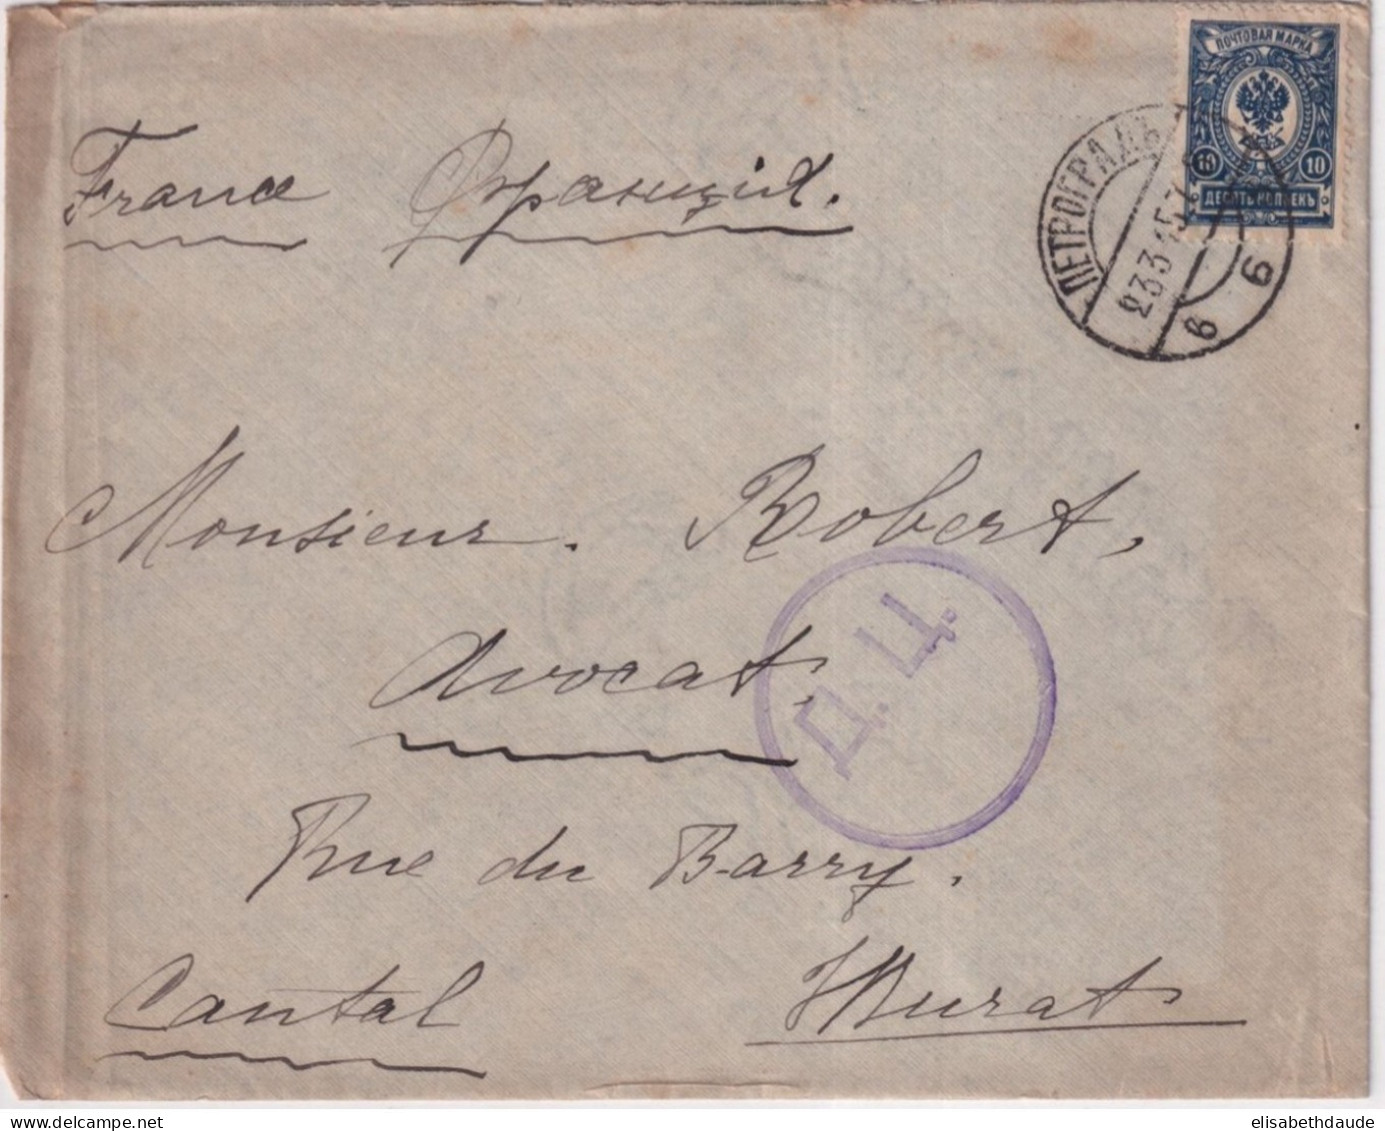 ПОЧТОВАЯ МАРКА
10 10
ДЕСЯТЬ КОПѢЕКЪ
ПЕТРОГРАДЪ
23 3 15 7
в 6
France Франція.
Monsieur. Robert,
Avocat,
Д.Ц.
Rue du Barry.
Cantal Murat
elisabethdaude